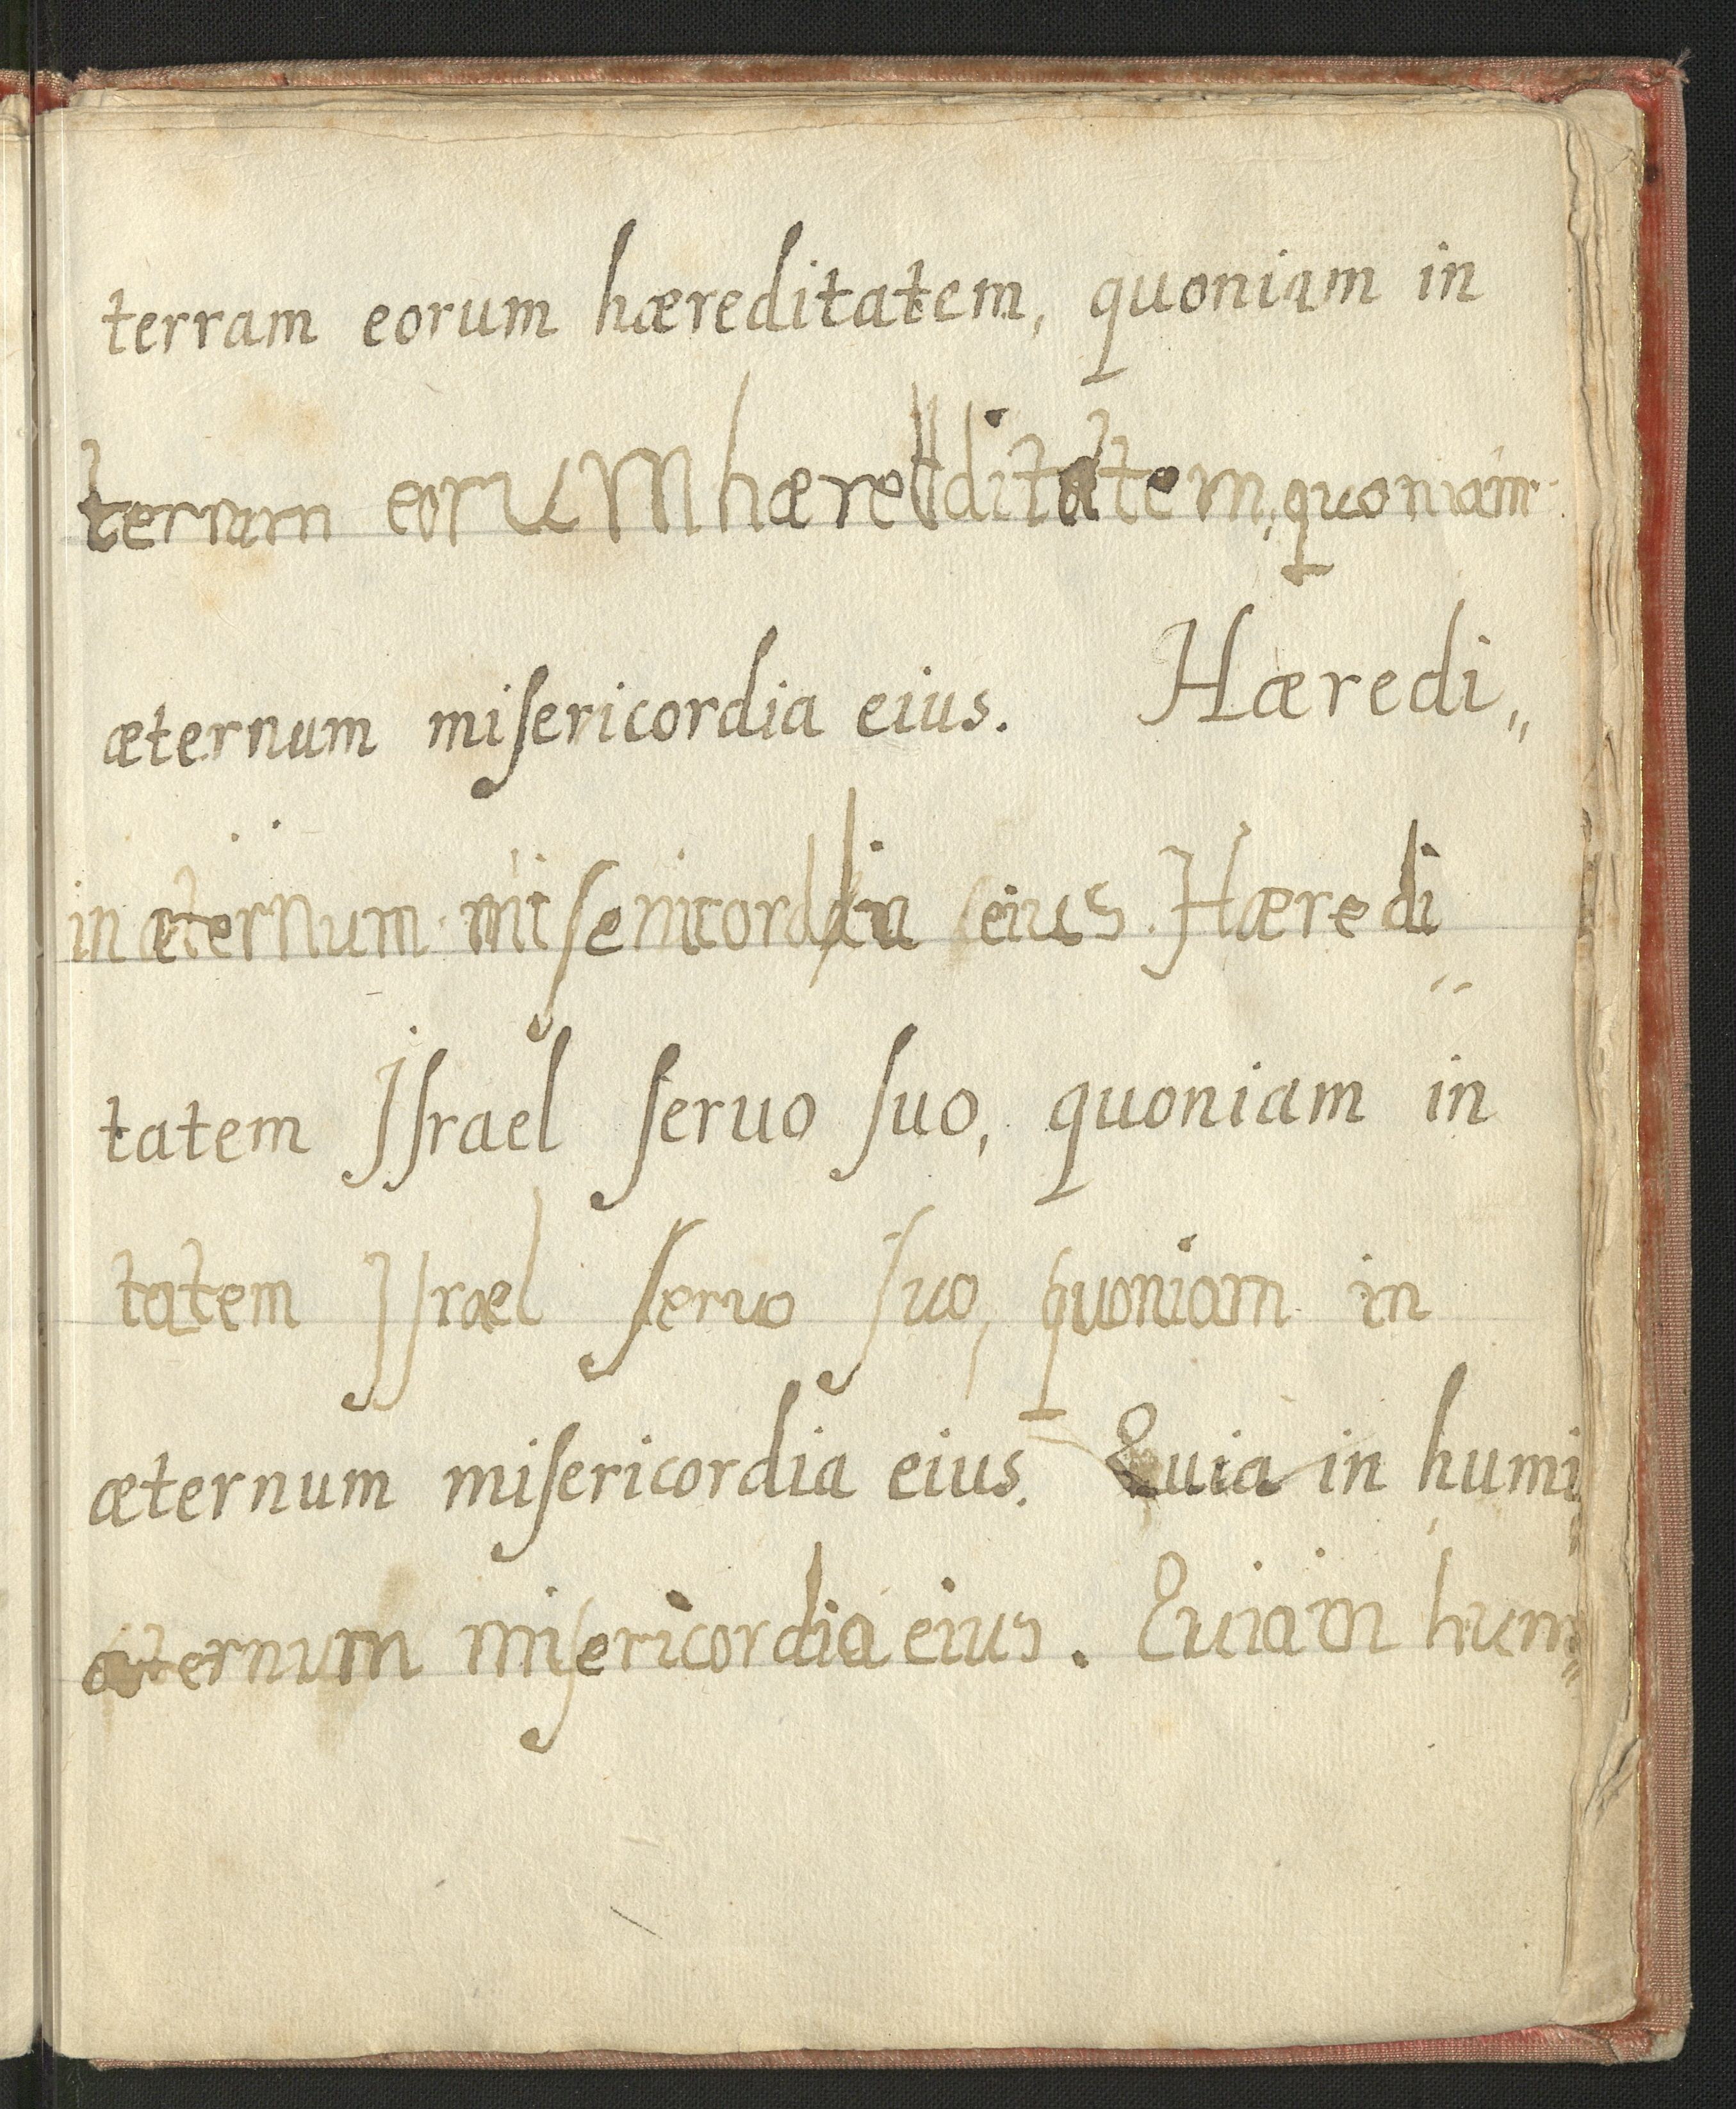 terram eorum hæreditatem, quoniam in
terram eorum hæreditatem, quoniam
æternum miſericordia eius. Hæredi„
in æternum miſericordia eius. Hæredi„
tatem Iſrael ſeruo ſuo, quoniam in
tatem Iſrael ſeruo ſuo, quoniam in
æternum miſericordia eius. Quia in humi„
æternum miſericordia eius. Quia in hum„